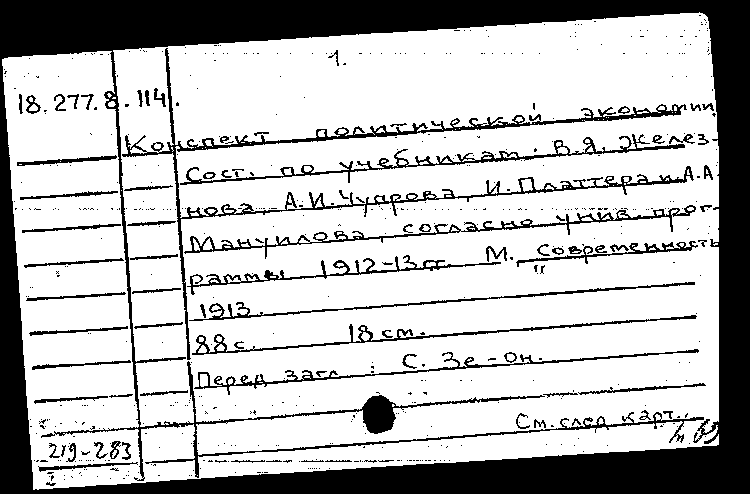 1.
18.277.8.114.
Конспект политической экономии
Сост. по учебникам: В.Я. Желез-
нова, А.И. Чупрова, И. Платтера и А.А.
Мануилова, согласно унив. прог-
раммы 1912-13 гг. М. "Современность
1913.
88с. 18 см.
Перед загл : С. Зе-он.
См. след карт.
219-283